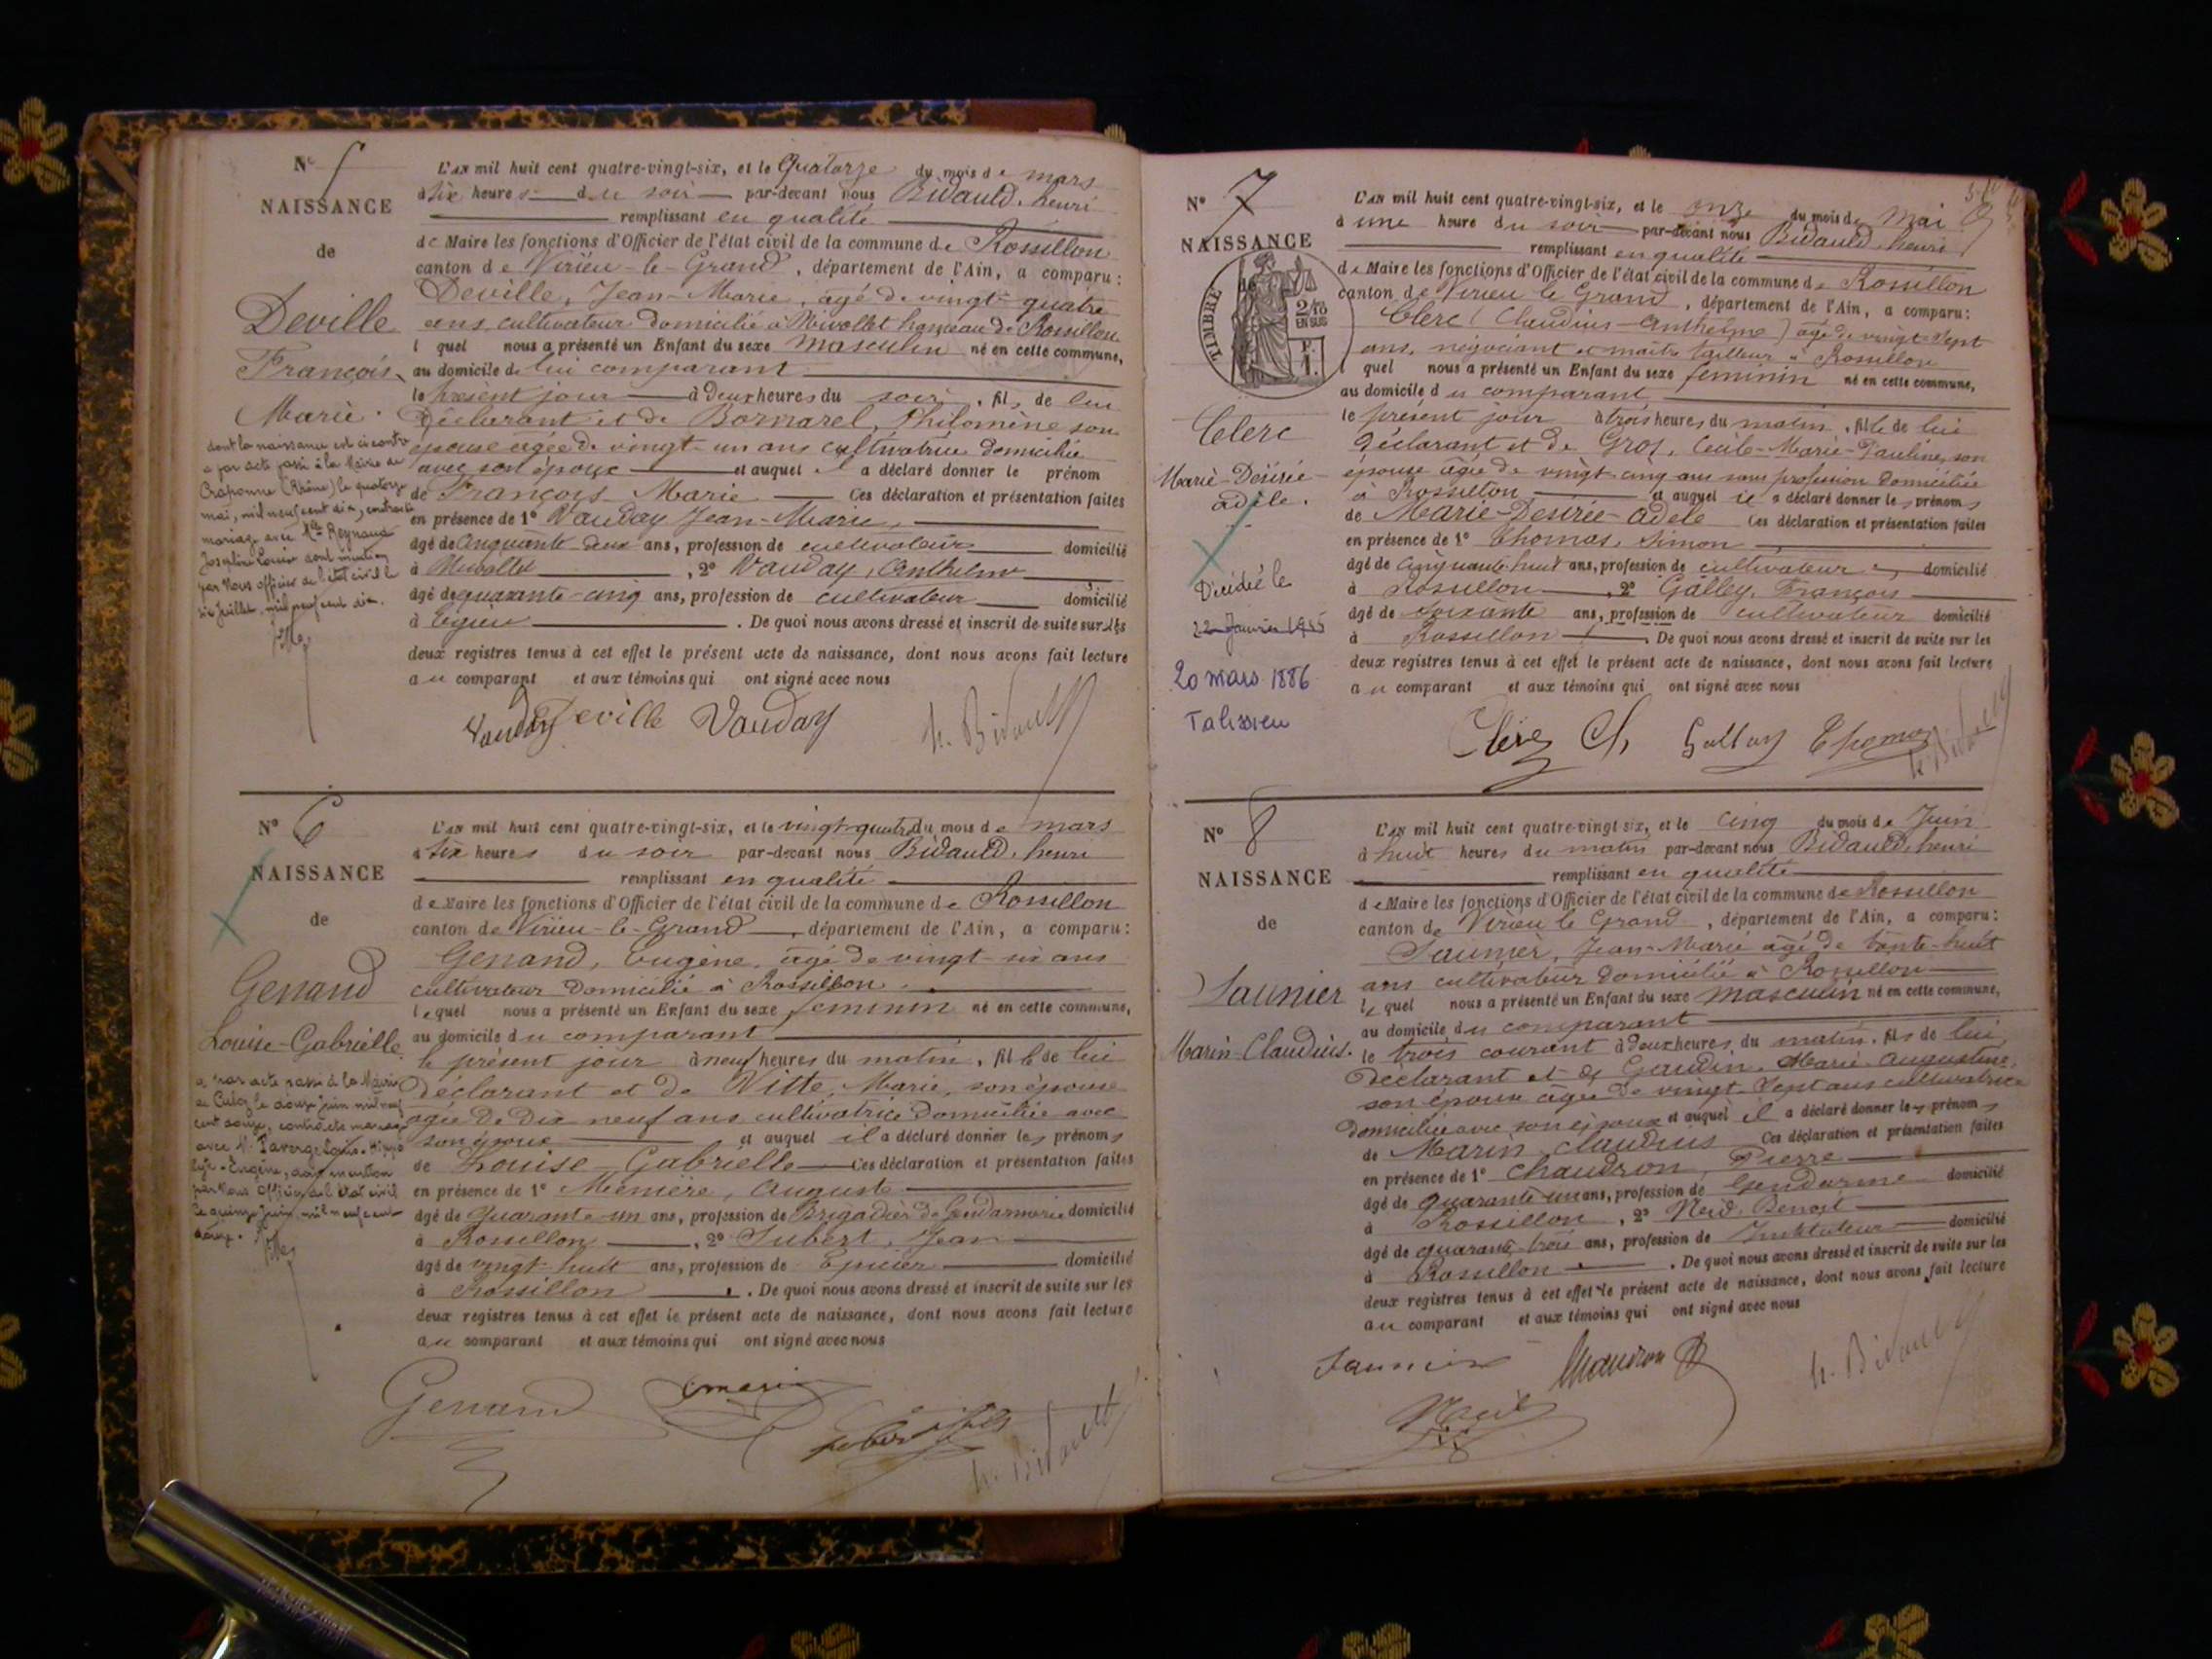 N° 5
NAISSANCE
de
Deville
François
Marie
dont la naissance est ci contre
a par acte passé à la Mairie de
Craponne (Rhône) le quatorze
mai, mil neuf cent dix, contracté
mariage avec Mlle Reynaud
Joséphine Louise dont mention
par Nous officier de l'état civil le
six Juillet, mil neuf cent dix.
L'an mil huit cent quatre-vingt-six, et le Quatorze du mois de mars
à six heures du soir par-devant nous Bidauld, henri
remplissant en qualité
de Maire les fonctions d'Officier de l'état civil de la commune de Rossillon
canton de Virieu-le-Grand, département de l'Ain, a comparu :
Deville, Jean-Marie, agé de vingt-quatre
ans, cultivateur domicilié à hameau de Rossillon
l quel nous a présenté un Enfant du sexe masculin né en cette commune,
au domicile de lui comparant
le présent jour à deux heures du soir, fils de lui
déclarant et de Bornarel, Philomène son
épouse agée de vingt-un ans cultivatrice domiciliée
avec son époux et auquel il a déclaré donner le prénom
de François Marie Ces déclaration et présentation faites
en présence de 1° Vauday Jean-Marie,
âgé de cinquante-deux ans, profession de cultivateur domicilié
à , 2° Vauday, Anthelme
âgé de quarante-cinq ans, profession de cultivateur domicilié
à . De quoi nous avons dressé et inscrit de suite sur les
deux registres tenus à cet effet le présent acte de naissance, dont nous avons fait lecture
au comparant et aux témoins qui ont signé avec nous
Vauday Deville Vauday h. Bidauld
N° 6
NAISSANCE
de
Genand
Louise-Gabrielle.
a par acte passé à la Mairie
de Culoz le douze Juin mil neuf
cent douze, contracté mariage
avec M. Paverge Louis-Hippo
lyte-Eugène, dont mention
par Nous Officier de l'état civil
le quinze Juin, mil neuf cent
douze.
L'an mil huit cent quatre-vingt-six, et le vingt-quatre du mois de mars
à six heures du soir par-devant nous Bidauld, henri
remplissant en qualité
de Maire les fonctions d'Officier de l'état civil de la commune de Rossillon
canton de Virieu-le-Grand, département de l'Ain, a comparu :
Genand, Eugène, âgé de vingt-six ans
cultivateur domicilié à Rossillon.
lequel nous a présenté un Enfant du sexe feminin né en cette commune,
au domicile du comparant
le présent jour à neuf heures du matin, fille de lui
déclarant et de Vitte, Marie, son épouse
agée de dix neuf ans cultivatrice domiciliée avec
son époux et auquel il a déclaré donner les prénoms
de Louise-Gabrielle Ces déclaration et présentation faites
en présence de 1° Menière, Auguste
âgé de Quarante-un ans, profession de Brigadier de Gendarmerie domicilié
à Rossillon, 2° Jubert, Jean
âgé de vingt-huit ans, profession de Epicier domicilié
à Rossillon. De quoi nous avons dressé et inscrit de suite sur les
deux registres tenus à cet effet le présent acte de naissance, dont nous avons fait lecture
au comparant et aux témoins qui ont signé avec nous
Genand h. Bidauld
N° 7
NAISSANCE
de
TIMBRE
2/10
EN SUS
P.
1.
Clerc
Marie-Désirée
adèle.
Décédée le
22 Janvier 1955
20 mars 1886
Talissieu
L'an mil huit cent quatre-vingt-six, et le onze du mois de Mai
à une heure du soir par-devant nous Bidauld, henri
remplissant en qualité
de Maire les fonctions d'Officier de l'état civil de la commune de Rossillon
canton de Virieu le Grand, département de l'Ain, a comparu :
Clerc (Claudius-Anthelme) âgé de vingt-sept
ans, négociant et maître tailleur à Rossillon
l quel nous a présenté un Enfant du sexe feminin né en cette commune,
au domicile du comparant
le présent jour à trois heures du matin, fille de lui
déclarant et de Gros, Cécile-Marie-Pauline, son
épouse âgée de vingt-cinq ans sans profession domiciliée
à Rossillon et auquel il a déclaré donner les prénoms
de Marie-Désirée-adèle Ces déclaration et présentation faites
en présence de 1° Thomas, Simon
âgé de Cinquante-huit ans, profession de cultivateur domicilié
à Rossillon, 2° Galley, François
âgé de soixante ans, profession de cultivateur domicilié
à Rossillon. De quoi nous avons dressé et inscrit de suite sur les
deux registres tenus à cet effet le présent acte de naissance, dont nous avons fait lecture
au comparant et aux témoins qui ont signé avec nous
Clerc Ch Galley Thomas h. Bidauld
N° 8
NAISSANCE
de
Saunier
Marin-Claudius.
L'an mil huit cent quatre-vingt-six, et le cinq du mois de Juin
à huit heures du matin par-devant nous Bidauld, henri
remplissant en qualité
de Maire les fonctions d'Officier de l'état civil de la commune de Rossillon
canton de Virieu le Grand, département de l'Ain, a comparu :
Saunier, Jean-Marie âgé de trente-huit
ans cultivateur domicilié à Rossillon
le quel nous a présenté un Enfant du sexe masculin né en cette commune,
au domicile du comparant
le trois courant à deux heures du matin, fils de lui
déclarant et de Gaudin, Marie-Augustine,
son épouse âgée de vingt-sept ans cultivatrice
domiciliée avec son époux et auquel il a déclaré donner les prénoms
de Marin Claudius Ces déclaration et présentation faites
en présence de 1° Chaudron, Pierre
âgé de quarante un ans, profession de Gendarme domicilié
à Rossillon, 2° Neid, Benoit
âgé de quarante-trois ans, profession de Instituteur domicilié
à Rossillon. De quoi nous avons dressé et inscrit de suite sur les
deux registres tenus à cet effet le présent acte de naissance, dont nous avons fait lecture
au comparant et aux témoins qui ont signé avec nous
Saunier Chaudron h. Bidauld